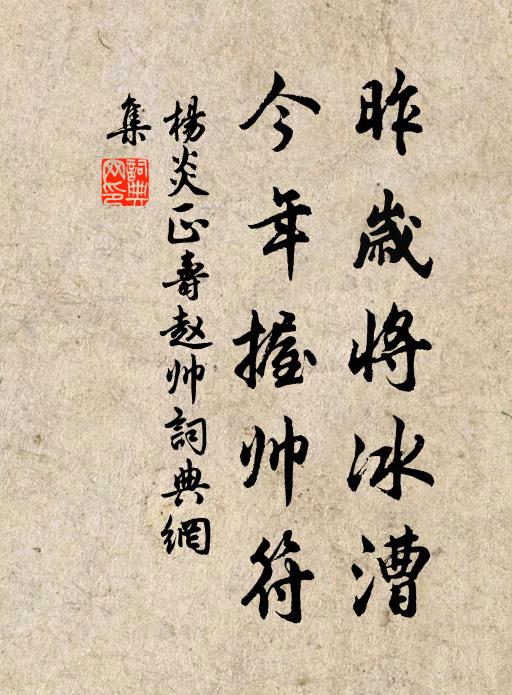 昨歲將冰漕
今年握帅符
楊炎正壽赵帅詞典網
集
詞典网印